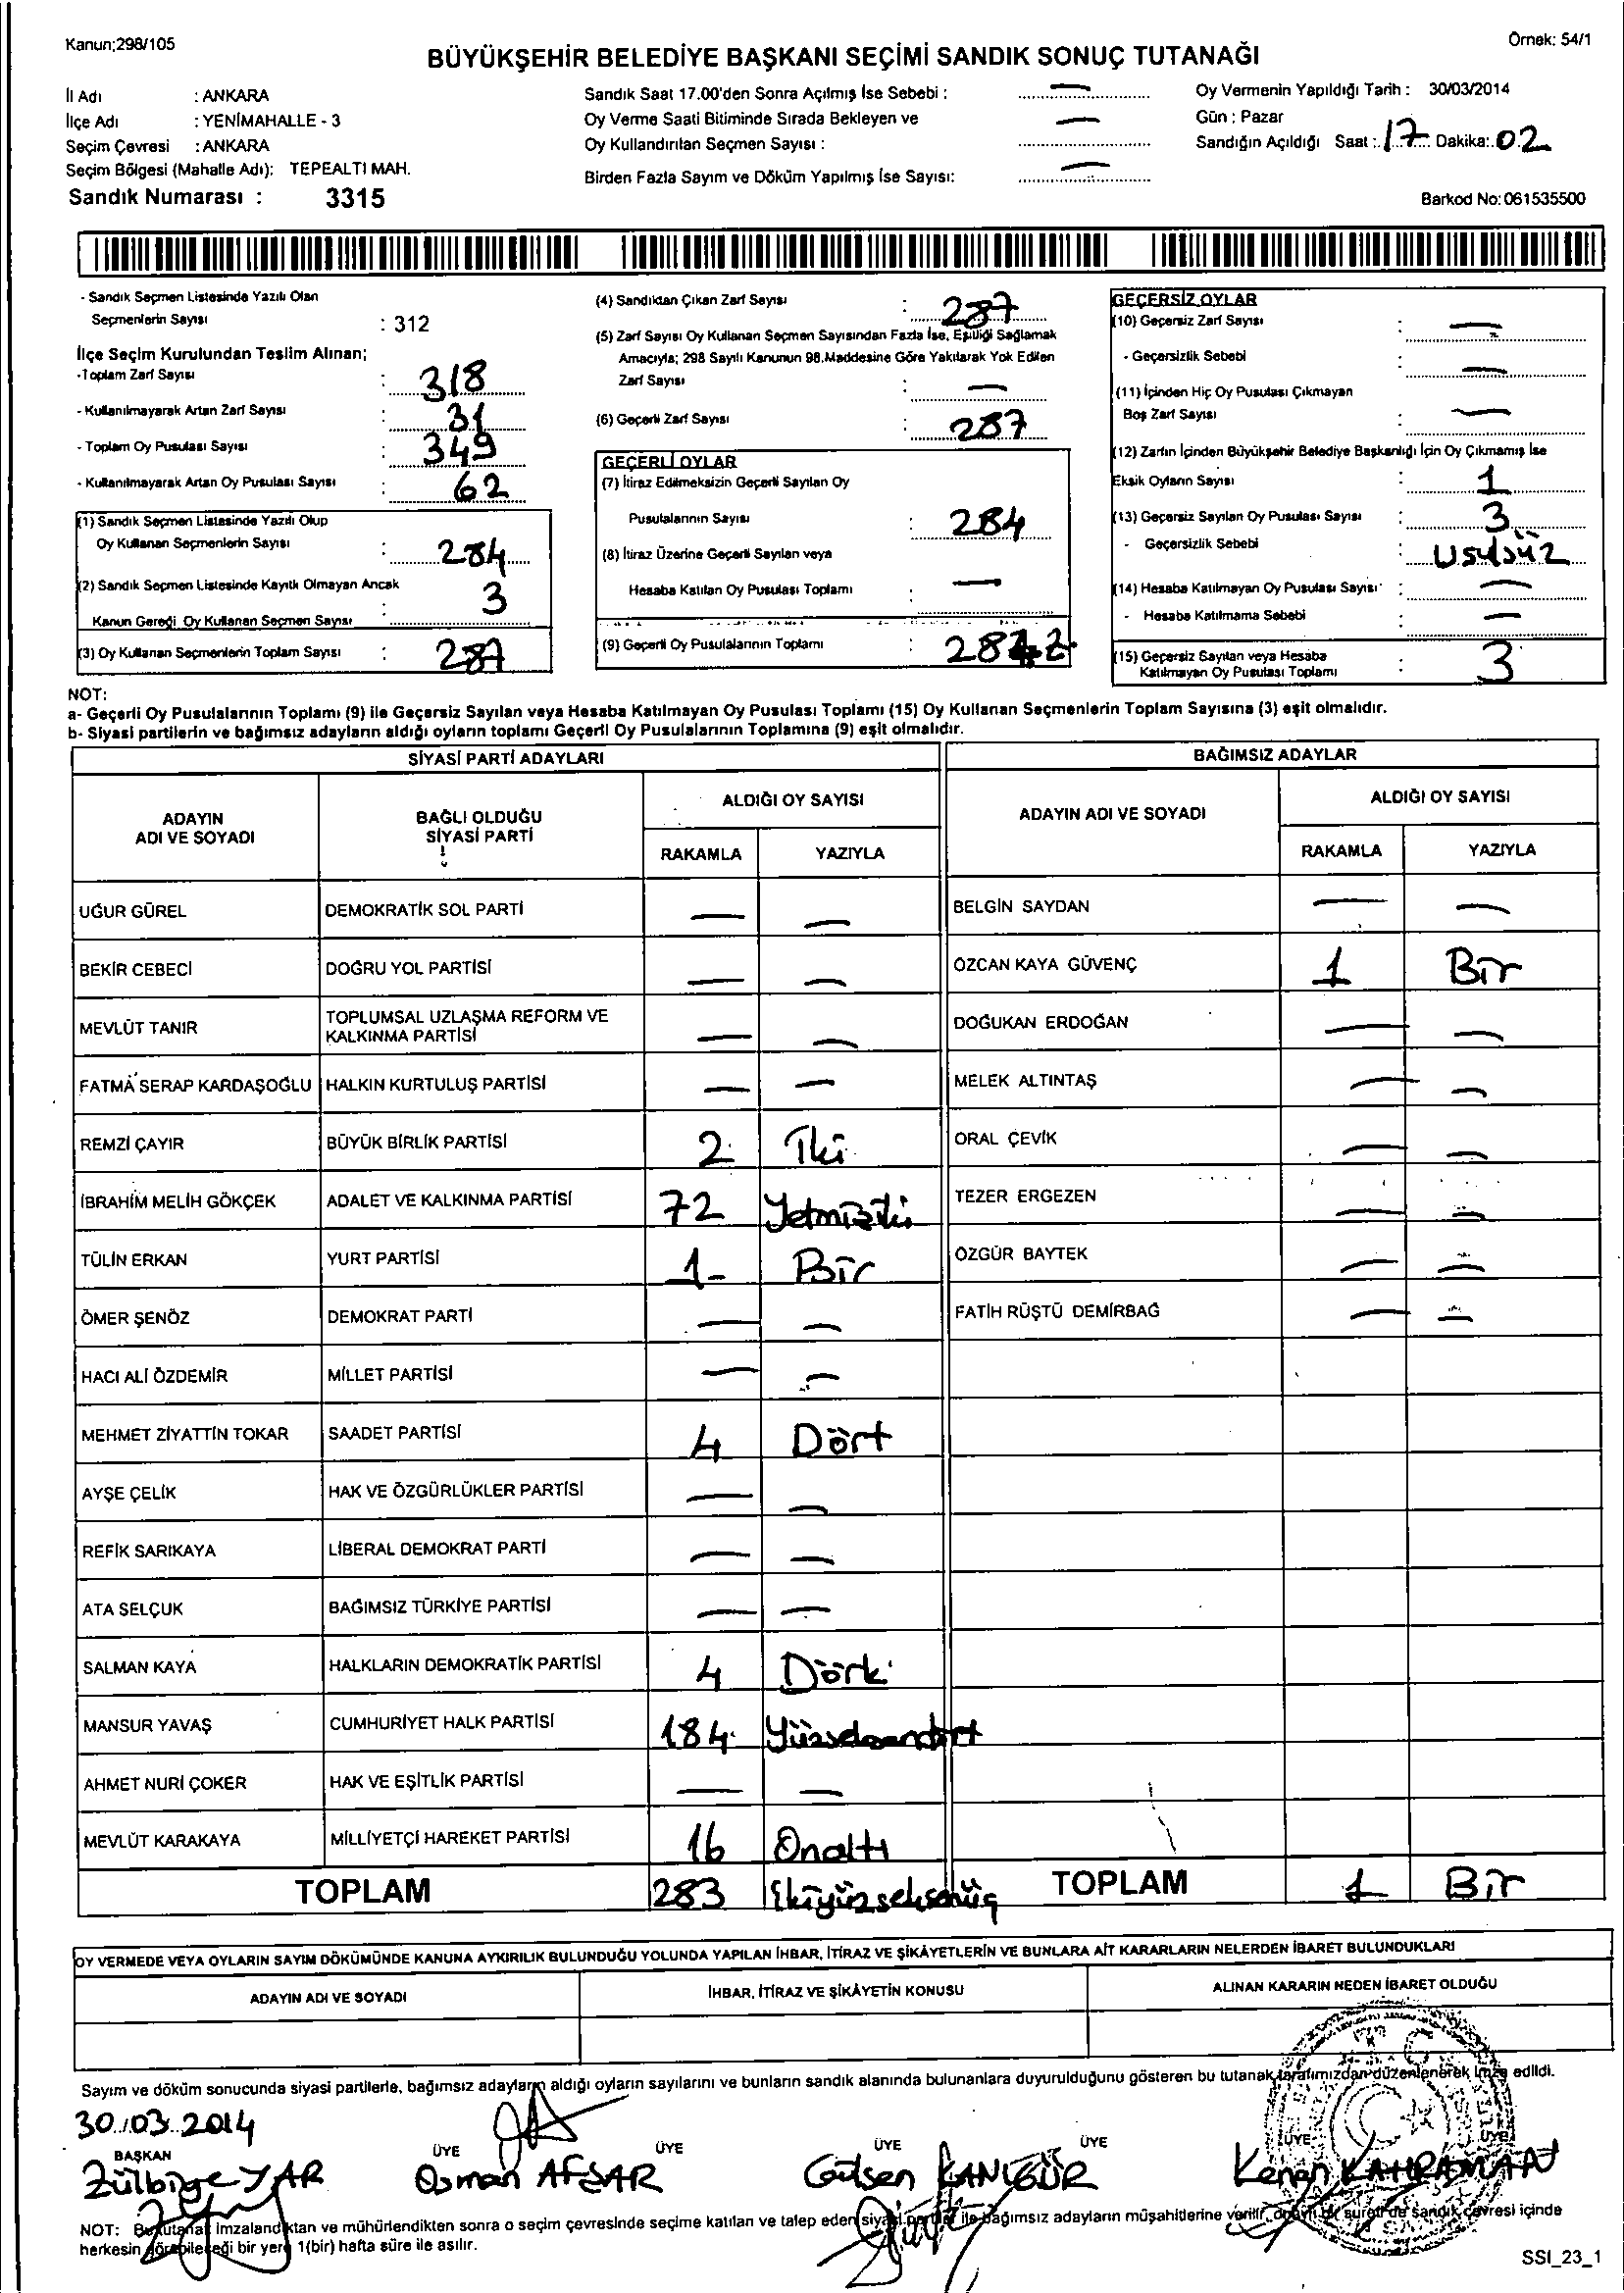 Kanun;298/105
Örnek: 54/1
BÜYÜKŞEHİR BELEDİYE BAŞKANI SEÇİMİ SANDIK SONUÇ TUTANAĞI
İl Adı : ANKARA
İlçe Adı : YENİMAHALLE - 3
Seçim Çevresi : ANKARA
Seçim Bölgesi (Mahalle Adı): TEPEALTI MAH.
Sandık Numarası : 3315
Sandık Saat 17.00'den Sonra Açılmış İse Sebebi : —
Oy Verme Saati Bitiminde Sırada Bekleyen ve
Oy Kullandırılan Seçmen Sayısı : —
Birden Fazla Sayım ve Döküm Yapılmış İse Sayısı: —
Oy Vermenin Yapıldığı Tarih : 30/03/2014
Gün : Pazar
Sandığın Açıldığı Saat : 17 Dakika: 02
Barkod No: 061535500
- Sandık Seçmen Listesinde Yazılı Olan
Seçmenlerin Sayısı : 312
İlçe Seçim Kurulundan Teslim Alınan;
-Toplam Zarf Sayısı : 318
- Kullanılmayarak Artan Zarf Sayısı : 31
- Toplam Oy Pusulası Sayısı : 349
- Kullanılmayarak Artan Oy Pusulası Sayısı : 62
(1) Sandık Seçmen Listesinde Yazılı Olup
Oy Kullanan Seçmenlerin Sayısı : 284
(2) Sandık Seçmen Listesinde Kayıtlı Olmayan Ancak
Kanun Gereği Oy Kullanan Seçmen Sayısı : 3
(3) Oy Kullanan Seçmenlerin Toplam Sayısı : 287
(4) Sandıktan Çıkan Zarf Sayısı : 287
(5) Zarf Sayısı Oy Kullanan Seçmen Sayısından Fazla İse, Eşitliği Sağlamak
Amacıyla; 298 Sayılı Kanunun 98.Maddesine Göre Yakılarak Yok Edilen
Zarf Sayısı : —
(6) Geçerli Zarf Sayısı : 287
GEÇERLİ OYLAR
(7) İtiraz Edilmeksizin Geçerli Sayılan Oy
Pusulalarının Sayısı : 284
(8) İtiraz Üzerine Geçerli Sayılan veya
Hesaba Katılan Oy Pusulası Toplamı : —
(9) Geçerli Oy Pusulalarının Toplamı :
GEÇERSİZ OYLAR
(10) Geçersiz Zarf Sayısı : —
- Geçersizlik Sebebi : —
(11) İçinden Hiç Oy Pusulası Çıkmayan
Boş Zarf Sayısı : —
(12) Zarfın İçinden Büyükşehir Belediye Başkanlığı İçin Oy Çıkmamış İse
Eksik Oyların Sayısı : 1
(13) Geçersiz Sayılan Oy Pusulası Sayısı : 3
- Geçersizlik Sebebi : Usulsüz
(14) Hesaba Katılmayan Oy Pusulası Sayısı : —
- Hesaba Katılmama Sebebi : —
(15) Geçersiz Sayılan veya Hesaba
Katılmayan Oy Pusulası Toplamı : 3
NOT:
a- Geçerli Oy Pusulalarının Toplamı (9) ile Geçersiz Sayılan veya Hesaba Katılmayan Oy Pusulası Toplamı (15) Oy Kullanan Seçmenlerin Toplam Sayısına (3) eşit olmalıdır.
b- Siyasi partilerin ve bağımsız adayların aldığı oyların toplamı Geçerli Oy Pusulalarının Toplamına (9) eşit olmalıdır.
SİYASİ PARTİ ADAYLARI
ADAYIN ADI VE SOYADI BAĞLI OLDUĞU SİYASİ PARTİ ALDIĞI OY SAYISI
RAKAMLA YAZIYLA
UĞUR GÜREL DEMOKRATİK SOL PARTİ — —
BEKİR CEBECİ DOĞRU YOL PARTİSİ — —
MEVLÜT TANIR TOPLUMSAL UZLAŞMA REFORM VE KALKINMA PARTİSİ — —
FATMA SERAP KARDAŞOĞLU HALKIN KURTULUŞ PARTİSİ — —
REMZİ ÇAYIR BÜYÜK BİRLİK PARTİSİ 2 İki
İBRAHİM MELİH GÖKÇEK ADALET VE KALKINMA PARTİSİ 72 Yetmişiki
TÜLİN ERKAN YURT PARTİSİ 1 Bir
ÖMER ŞENÖZ DEMOKRAT PARTİ — —
HACI ALİ ÖZDEMİR MİLLET PARTİSİ — —
MEHMET ZİYATTİN TOKAR SAADET PARTİSİ 4 Dört
AYŞE ÇELİK HAK VE ÖZGÜRLÜKLER PARTİSİ — —
REFİK SARIKAYA LİBERAL DEMOKRAT PARTİ — —
ATA SELÇUK BAĞIMSIZ TÜRKİYE PARTİSİ — —
SALMAN KAYA HALKLARIN DEMOKRATİK PARTİSİ 4 Dört
MANSUR YAVAŞ CUMHURİYET HALK PARTİSİ 184 Yüzseksendört
AHMET NURİ ÇOKER HAK VE EŞİTLİK PARTİSİ — —
MEVLÜT KARAKAYA MİLLİYETÇİ HAREKET PARTİSİ 16 Onaltı
TOPLAM 283 İkiyüzseksenüç
BAĞIMSIZ ADAYLAR
ADAYIN ADI VE SOYADI ALDIĞI OY SAYISI
RAKAMLA YAZIYLA
BELGİN SAYDAN — —
ÖZCAN KAYA GÜVENÇ 1 Bir
DOĞUKAN ERDOĞAN — —
MELEK ALTINTAŞ — —
ORAL ÇEVİK — —
TEZER ERGEZEN — —
ÖZGÜR BAYTEK — —
FATİH RÜŞTÜ DEMİRBAĞ — —
TOPLAM 1 Bir
OY VERMEDE VEYA OYLARIN SAYIM DÖKÜMÜNDE KANUNA AYKIRILIK BULUNDUĞU YOLUNDA YAPILAN İHBAR, İTİRAZ VE ŞİKÂYETLERİN VE BUNLARA AİT KARARLARIN NELERDEN İBARET BULUNDUKLARI
ADAYIN ADI VE SOYADI İHBAR, İTİRAZ VE ŞİKÂYETİN KONUSU ALINAN KARARIN NEDEN İBARET OLDUĞU
Sayım ve döküm sonucunda siyasi partilerle, bağımsız adayların aldığı oyların sayılarını ve bunların sandık alanında bulunanlara duyurulduğunu gösteren bu tutanak tarafımızdan düzenlenerek imza edildi.
30.03.2014
BAŞKAN ÜYE ÜYE ÜYE ÜYE ÜYE ÜYE
Zülbiye YAR Osman AFŞAR Gülsen Kenan KAHRAMAN
NOT: Bu tutanak imzalandıktan ve mühürlendikten sonra o seçim çevresinde seçime katılan ve talep eden siyasi partiler ile bağımsız adayların müşahitlerine verilir, onaylı bir sureti de sandık çevresi içinde
herkesin görebileceği bir yere 1(bir) hafta süre ile asılır.
SSI_23_1